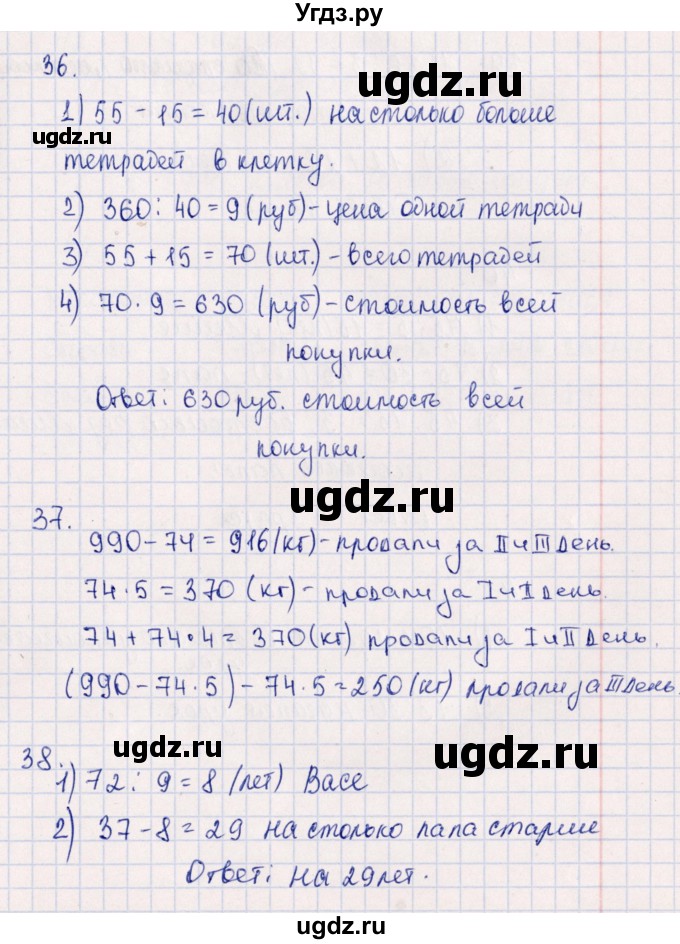 Угдз.ру
36.
ugdz.ru
ugdz.ru
1) 55 - 15 = 40 (шт.) на столько больше
тетрадей в клетку.
2) 360 : 40 = 9 (руб) - цена одной тетради
3) 55 + 15 = 70 (шт.) - всего тетрадей
4) 70 · 9 = 630 (руб) - стоимость всей
покупки.
Ответ: 630 руб. стоимость всей
покупки.
ugdz.ru
37.
990 - 74 = 916 (кг) - продали за II и III день.
74 · 5 = 370 (кг) - продали за I и II день.
74 + 74 · 4 = 370 (кг) продали за I и II день.
(990 - 74 · 5) - 74 · 5 = 250 (кг) продали за III день.
ugdz.ru
ugdz.ru
38.
1) 72 : 9 = 8 (лет) Васе
2) 37 - 8 = 29 на столько папа старше
Ответ: на 29 лет.
ugdz.ru